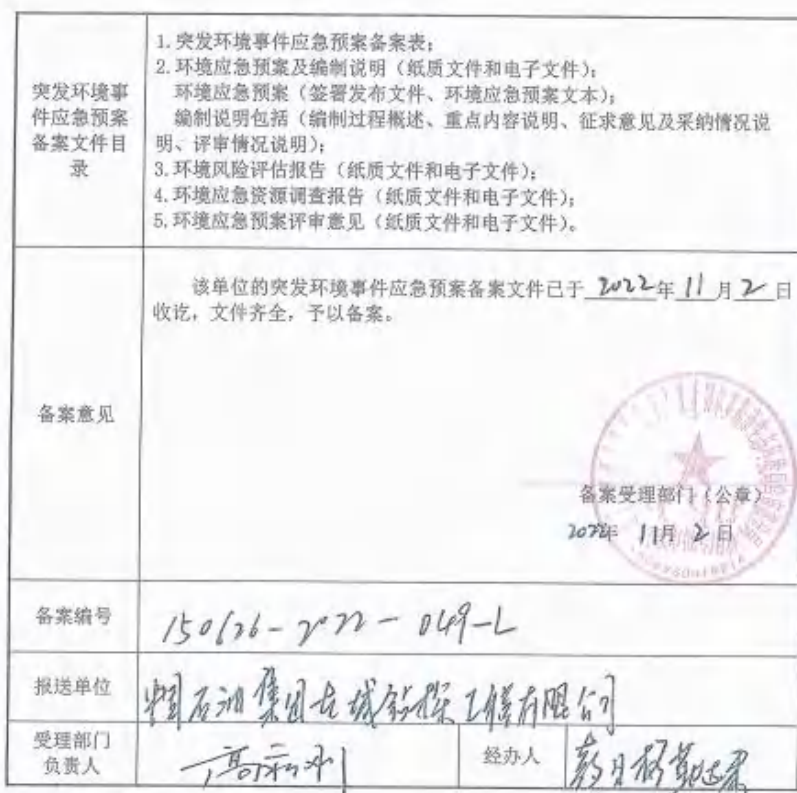 突发环境事
件应急预案
备案文件目
录
1.突发环境事件应急预案备案表;
2.环境应急预案及编制说明(纸质文件和电子文件);
环境应急预案(签署发布文件、环境应急预案文本);
编制说明包括(编制过程概述、重点内容说明、征求意见及采纳情况说
明、评审情况说明);
3.环境风险评估报告(纸质文件和电子文件);
4.环境应急资源调查报告(纸质文件和电子文件);
5.环境应急预案评审意见(纸质文件和电子文件)。
备案意见
该单位的突发环境事件应急预案备案文件已于2022年11月2日
收讫,文件齐全,予以备案。
备案受理部门(公章)
2022年 11月 2日
备案编号
150626-2022-049-L
报送单位
中国石油集团长城钻探工程有限公司
受理部门
负责人
经办人